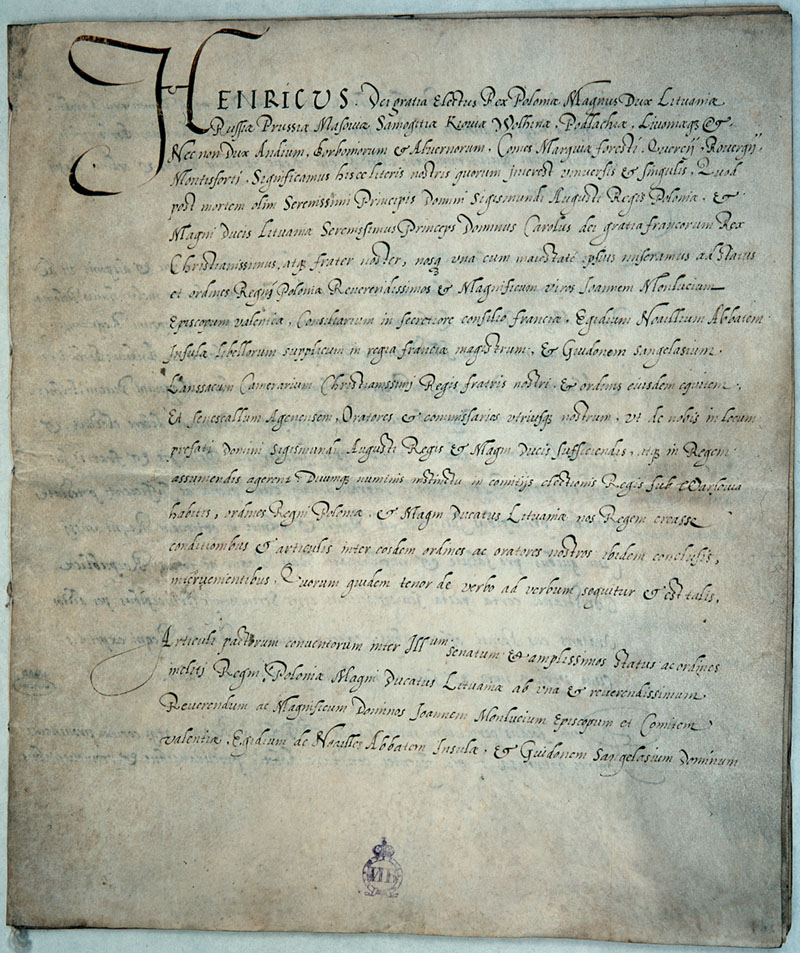 HENRICVS. Dei gratia Electus Rex Poloniæ Magnus Dux Lituaniæ
Russiæ Prussiæ Masoviæ Samogitiæ Kioviæ Wolhinæ, Podlachiæ, Livoniæq3 &.
Nec non Dux Andium, Borboniorum & Alvernorum, Comes Marquiæ foresti Quercij, Rovergij
Montisforti, Significamus hisce literis nostris quorum interest vniversis & singulis, Quod
post mortem olim Serenissimi Principis Domini Sigismundi Augusti Regis Poloniæ, &
Magni Ducis Lituaniæ Serenissimus Princeps Dominus Carolus dei gratia francorum Rex
Christianissimus, atq3 frater noster, nosq3 vna cum maiestate ipsius miseramus ad status
et ordines Regni Poloniæ Reverendissimos & Magnificum viros Joannem Monlucium
Episcopum valentiæ, Consiliarium in secretiore consilio franciæ, Egidium Noaillium Abbatem
Insulæ libellorum supplicum in regia franciæ magistrum, & Guidonem Sangelasium
Lanssacum Camerarium Christianissimi Regis fratris nostri, & ordinis eiusdem equitem,
Et Senescallum Agenensem, Oratores & commissarios vtriusq3 nostrum, vt de nobis in locum
prefati Domini Sigismundi Augusti Regis & Magni Ducis sufficiendis, atq3 in Regem
assumendis agerent, Duumq3 numinis instinctu in comitijs electionis Regis sub Warsovia
habitis, ordines Regni Poloniæ, & Magni Ducatus Lituaniæ nos Regem creasse
conditionibus & articulis inter eosdem ordines ac oratores nostros ibidem conclusis,
intervenientibus. Quorum quidem tenor de verbo ad verbum sequitur & est talis.
Articuli pactorum conventorum inter Illum senatum & amplissimos status ac ordines
inclitj Regni Poloniæ Magni Ducatus Lituaniæ ab vna & reverendissimum
Reverendum ac Magnificum Dominos Joannem Monlucium Episcopum et Comitem
valentiæ, Egidium de Noailles Abbatem Insulæ, & Guidonem Sangelasium Dominum